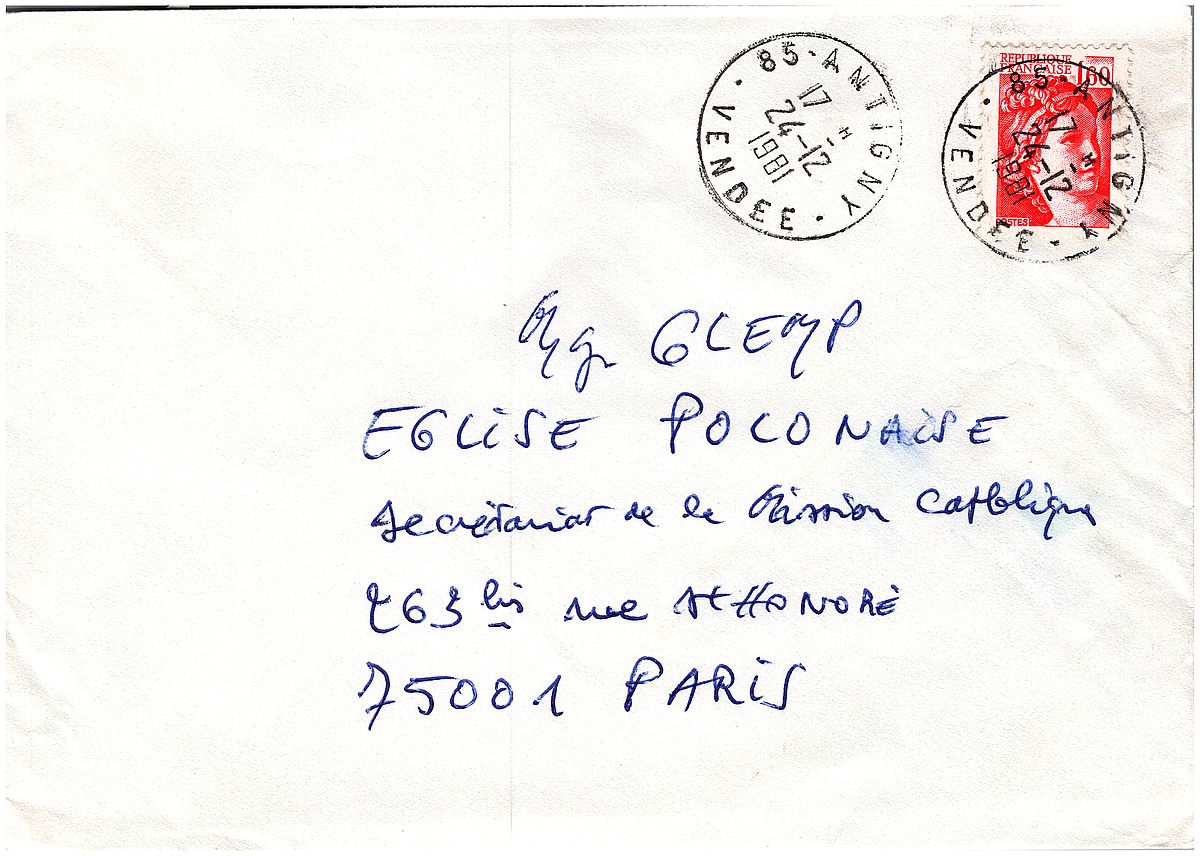 85 - ANTIGNY
17 H
24-12
1981
VENDEE
REPUBLIQUE
FRANÇAISE 1,60
POSTES
85 - ANTIGNY
17 H
24-12
1981
VENDEE
Mgr GLEMP
EGLISE POLONAISE
Secrétariat de la Mission Catholique
263 bis rue St HONORÉ
75001 PARIS